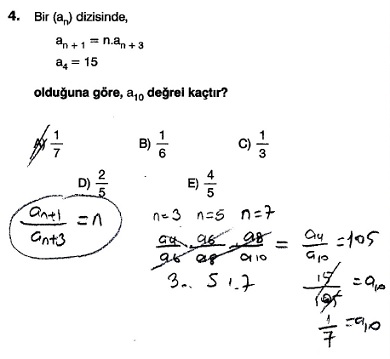 4. Bir (aₙ) dizisinde,
aₙ₊₁ = n.aₙ₊₃
a₄ = 15
olduğuna göre, a₁₀ değrei kaçtır?
A) 1/7 B) 1/6 C) 1/3
D) 2/5 E) 4/5
aₙ₊₁/aₙ₊₃ = n
n=3 n=5 n=7
a₄/a₆ . a₆/a₈ . a₈/a₁₀ = a₄/a₁₀ = 105
3 . 5 . 7
15/105 = a₁₀
1/7 = a₁₀